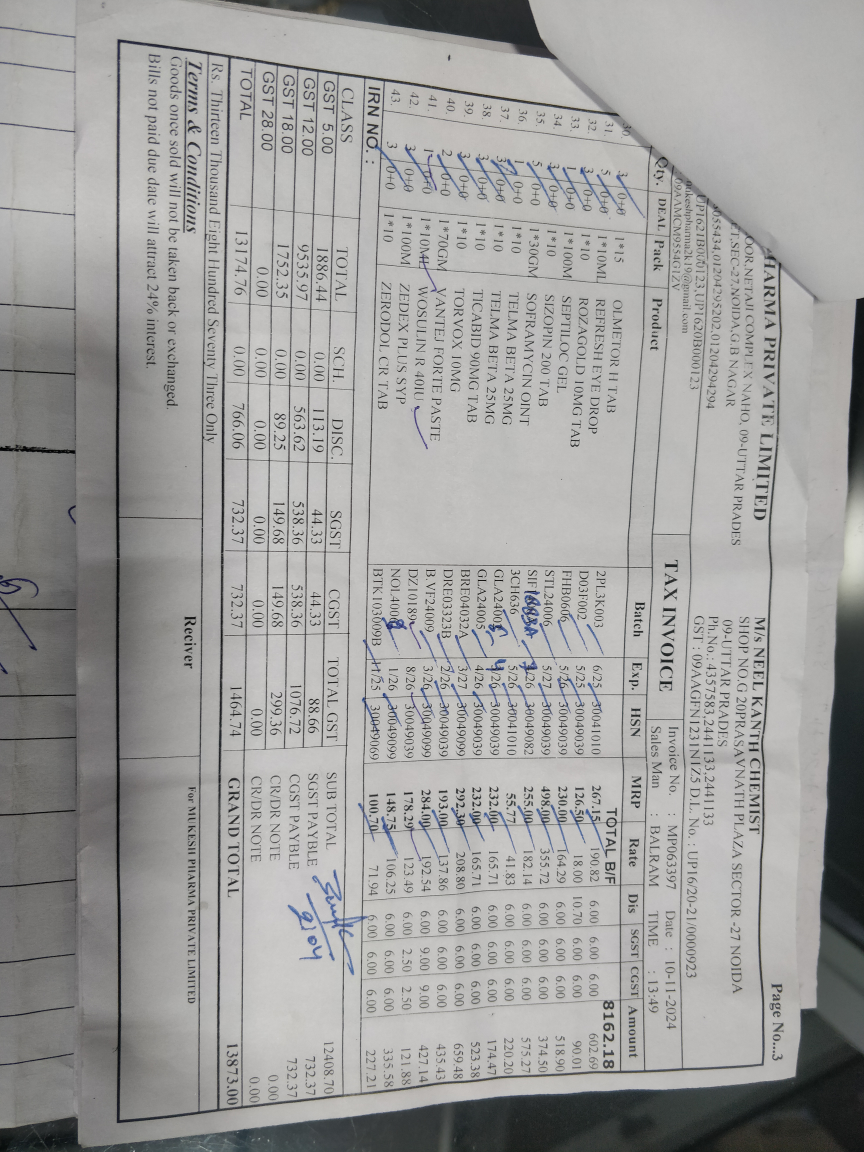 PHARMA PRIVATE LIMITED
OOR,NETAJI COMPLEX NAHO, 09-UTTAR PRADES
CT,SEC-27,NOIDA,G.B NAGAR
055434,01204295202,01204294294
UP1621B000123,UP1620B000123
mukeshpharma2k19@gmail.com
09AAMCM9554G1ZV
Page No...3
M/s NEEL KANTH CHEMIST
SHOP NO.G 20PRASAVNATH PLAZA SECTOR -27 NOIDA
09-UTTAR PRADES
Ph.No.: 4357583,2441133,2441133
GST : 09AAGFN1231N1Z5 D.L. No.: UP16/20-21/0000923
TAX INVOICE
Invoice No. : MP063397 Date : 10-11-2024
Sales Man : BALRAM TIME : 13:49
Qty. DEAL Pack Product Batch Exp. HSN MRP Rate Dis SGST CGST Amount
TOTAL B/F 8162.18
30. 3 0+0 1*15 OLMETOR H TAB 2PL3K003 6/25 30041010 267.15 190.82 6.00 6.00 6.00 602.69
31. 5 0+0 1*10ML REFRESH EYE DROP D03F002 5/25 30049039 126.50 18.00 10.70 6.00 6.00 90.01
32. 3 0+0 1*10 ROZAGOLD 10MG TAB FHB0606 5/26 30049039 230.00 164.29 6.00 6.00 6.00 518.90
33. 1 0+0 1*100M SEPTILOC GEL STL24006 5/27 30049039 498.00 355.72 6.00 6.00 6.00 374.50
34. 3 0+0 1*10 SIZOPIN 200 TAB 30049082 255.00 182.14 6.00 6.00 6.00 575.27
35. 5 0+0 1*30GM SOFRAMYCIN OINT 3CH636 5/26 30041010 55.77 41.83 6.00 6.00 6.00 220.20
36. 1 0+0 1*10 TELMA BETA 25MG 4/26 30049039 232.00 165.71 6.00 6.00 6.00 174.47
37. 3 0+0 1*10 TELMA BETA 25MG GLA24005 4/26 30049039 232.00 165.71 6.00 6.00 6.00 523.38
38. 3 0+0 1*10 TICABID 90MG TAB BRE04032A 3/27 30049099 292.30 208.80 6.00 6.00 6.00 659.48
39. 3 0+0 1*10 TORVOX 10MG DRE03323B 2/26 30049039 193.00 137.86 6.00 6.00 6.00 435.43
40. 2 0+0 1*70GM VANTEJ FORTE PASTE B.VF24009 3/26 30049099 284.00 192.54 6.00 9.00 9.00 427.14
41. 1 0+0 1*10ML WOSULIN R 40IU DZ10189 8/26 30049039 178.29 123.49 6.00 2.50 2.50 121.88
42. 3 0+0 1*100M ZEDEX PLUS SYP 1/26 30049099 148.75 106.25 6.00 6.00 6.00 335.58
43. 3 0+0 1*10 ZERODOL CR TAB BTK103009B 11/25 30049069 100.70 71.94 6.00 6.00 6.00 227.21
IRN NO. :
CLASS TOTAL SCH. DISC. SGST CGST TOTAL GST
GST 5.00 1886.44 0.00 113.19 44.33 44.33 88.66
GST 12.00 9535.97 0.00 563.62 538.36 538.36 1076.72
GST 18.00 1752.35 0.00 89.25 149.68 149.68 299.36
GST 28.00 0.00 0.00 0.00 0.00 0.00 0.00
TOTAL 13174.76 0.00 766.06 732.37 732.37 1464.74
SUB TOTAL 12408.70
SGST PAYBLE 732.37
CGST PAYBLE 732.37
CR/DR NOTE 0.00
CR/DR NOTE 0.00
GRAND TOTAL 13873.00
Rs. Thirteen Thousand Eight Hundred Seventy Three Only
Terms & Conditions
Goods once sold will not be taken back or exchanged.
Bills not paid due date will attract 24% interest.
Reciver
For MUKESH PHARMA PRIVATE LIMITED